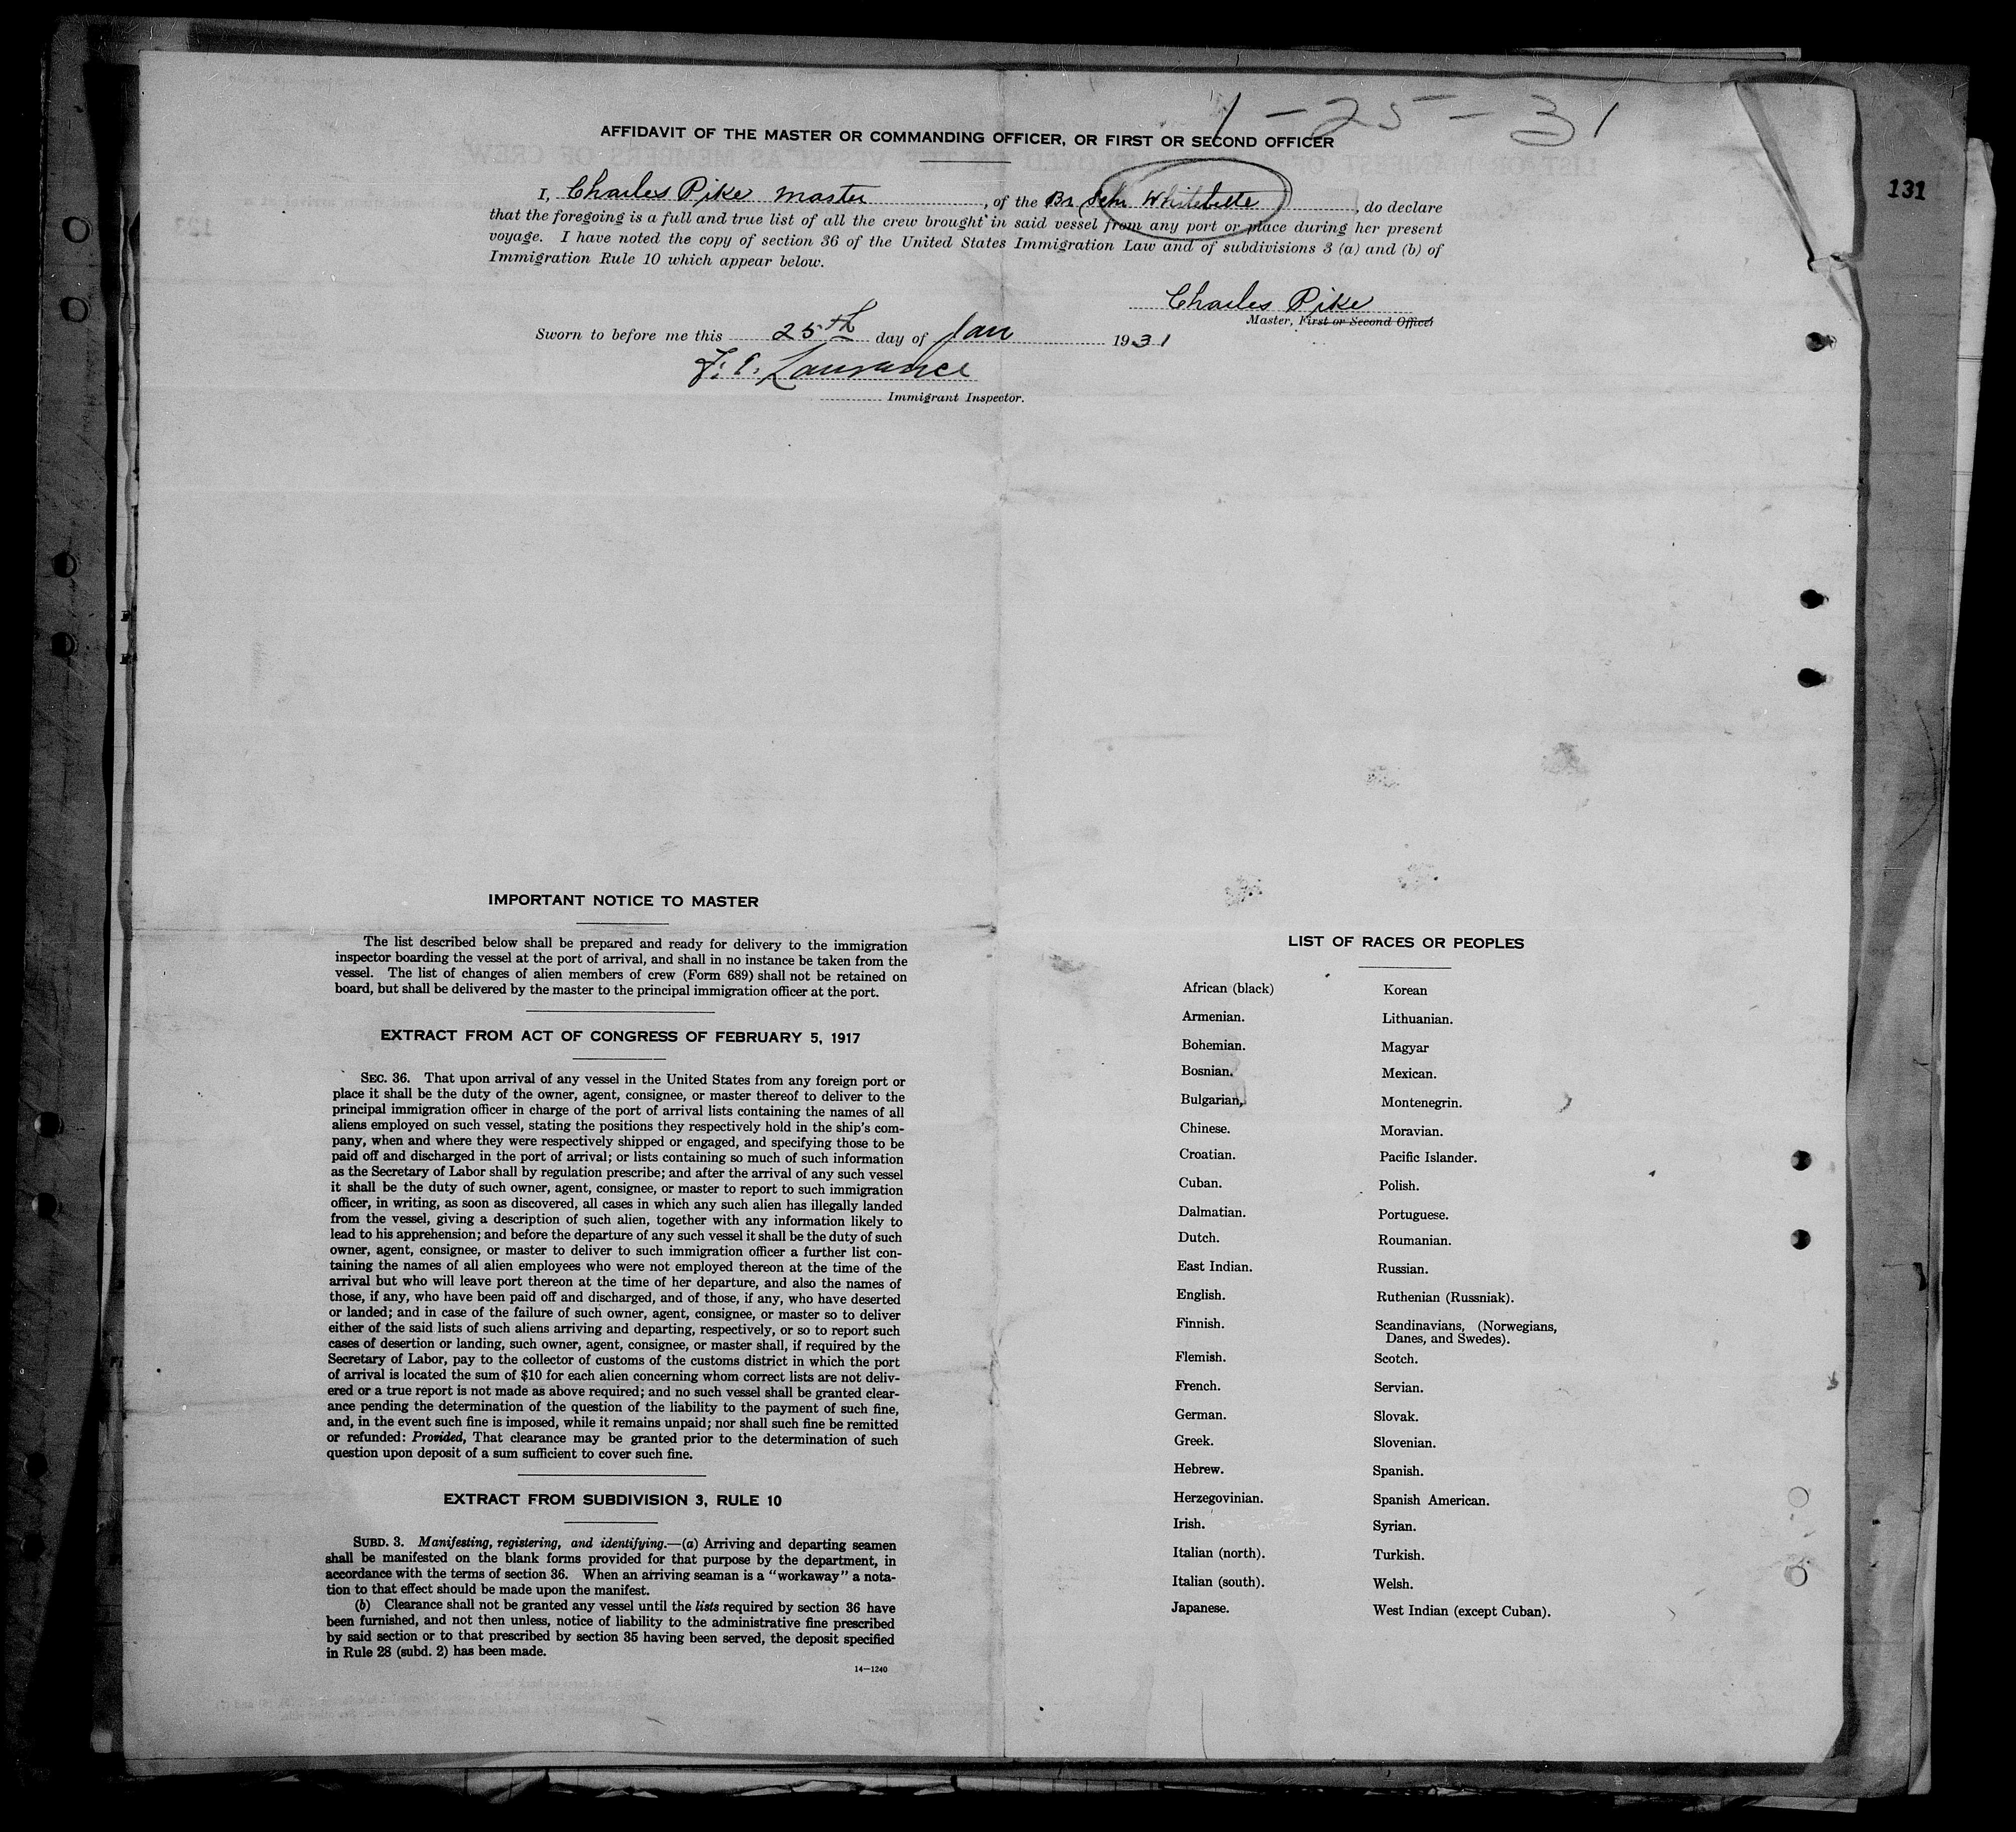 1-25-31
AFFIDAVIT OF THE MASTER OR COMMANDING OFFICER, OR FIRST OR SECOND OFFICER
131
I, Charles Pike Master, of the Br Schr, do declare
that the foregoing is a full and true list of all the crew brought in said vessel from any port or place during her present
voyage. I have noted the copy of section 36 of the United States Immigration Law and of subdivisions 3 (a) and (b) of
Immigration Rule 10 which appear below.
Charles Pike
Master, First or Second Officer
Sworn to before me this 25th day of Jan 1931
Immigrant Inspector.
IMPORTANT NOTICE TO MASTER
The list described below shall be prepared and ready for delivery to the immigration
inspector boarding the vessel at the port of arrival, and shall in no instance be taken from the
vessel. The list of changes of alien members of crew (Form 689) shall not be retained on
board, but shall be delivered by the master to the principal immigration officer at the port.
EXTRACT FROM ACT OF CONGRESS OF FEBRUARY 5, 1917
SEC. 36. That upon arrival of any vessel in the United States from any foreign port or
place it shall be the duty of the owner, agent, consignee, or master thereof to deliver to the
principal immigration officer in charge of the port of arrival lists containing the names of all
aliens employed on such vessel, stating the positions they respectively hold in the ship's com-
pany, when and where they were respectively shipped or engaged, and specifying those to be
paid off and discharged in the port of arrival; or lists containing so much of such information
as the Secretary of Labor shall by regulation prescribe; and after the arrival of any such vessel
it shall be the duty of such owner, agent, consignee, or master to report to such immigration
officer, in writing, as soon as discovered, all cases in which any such alien has illegally landed
from the vessel, giving a description of such alien, together with any information likely to
lead to his apprehension; and before the departure of any such vessel it shall be the duty of such
owner, agent, consignee, or master to deliver to such immigration officer a further list con-
taining the names of all alien employees who were not employed thereon at the time of the
arrival but who will leave port thereon at the time of her departure, and also the names of
those, if any, who have been paid off and discharged, and of those, if any, who have deserted
or landed; and in case of the failure of such owner, agent, consignee, or master so to deliver
either of the said lists of such aliens arriving and departing, respectively, or so to report such
cases of desertion or landing, such owner, agent, consignee, or master shall, if required by the
Secretary of Labor, pay to the collector of customs of the customs district in which the port
of arrival is located the sum of $10 for each alien concerning whom correct lists are not deliv-
ered or a true report is not made as above required; and no such vessel shall be granted clear-
ance pending the determination of the question of the liability to the payment of such fine,
and, in the event such fine is imposed, while it remains unpaid; nor shall such fine be remitted
or refunded: Provided, That clearance may be granted prior to the determination of such
question upon deposit of a sum sufficient to cover such fine.
EXTRACT FROM SUBDIVISION 3, RULE 10
SUBD. 3. Manifesting, registering, and identifying.—(a) Arriving and departing seamen
shall be manifested on the blank forms provided for that purpose by the department, in
accordance with the terms of section 36. When an arriving seaman is a "workaway" a nota-
tion to that effect should be made upon the manifest.
(b) Clearance shall not be granted any vessel until the lists required by section 36 have
been furnished, and not then unless, notice of liability to the administrative fine prescribed
by said section or to that prescribed by section 35 having been served, the deposit specified
in Rule 28 (subd. 2) has been made.
14—1240
LIST OF RACES OR PEOPLES
African (black)
Armenian.
Bohemian.
Bosnian.
Bulgarian.
Chinese.
Croatian.
Cuban.
Dalmatian.
Dutch.
East Indian.
English.
Finnish.
Flemish.
French.
German.
Greek.
Hebrew.
Herzegovinian.
Irish.
Italian (north).
Italian (south).
Japanese.
Korean
Lithuanian.
Magyar
Mexican.
Montenegrin.
Moravian.
Pacific Islander.
Polish.
Portuguese.
Roumanian.
Russian.
Ruthenian (Russniak).
Scandinavians, (Norwegians,
Danes, and Swedes).
Scotch.
Servian.
Slovak.
Slovenian.
Spanish.
Spanish American.
Syrian.
Turkish.
Welsh.
West Indian (except Cuban).